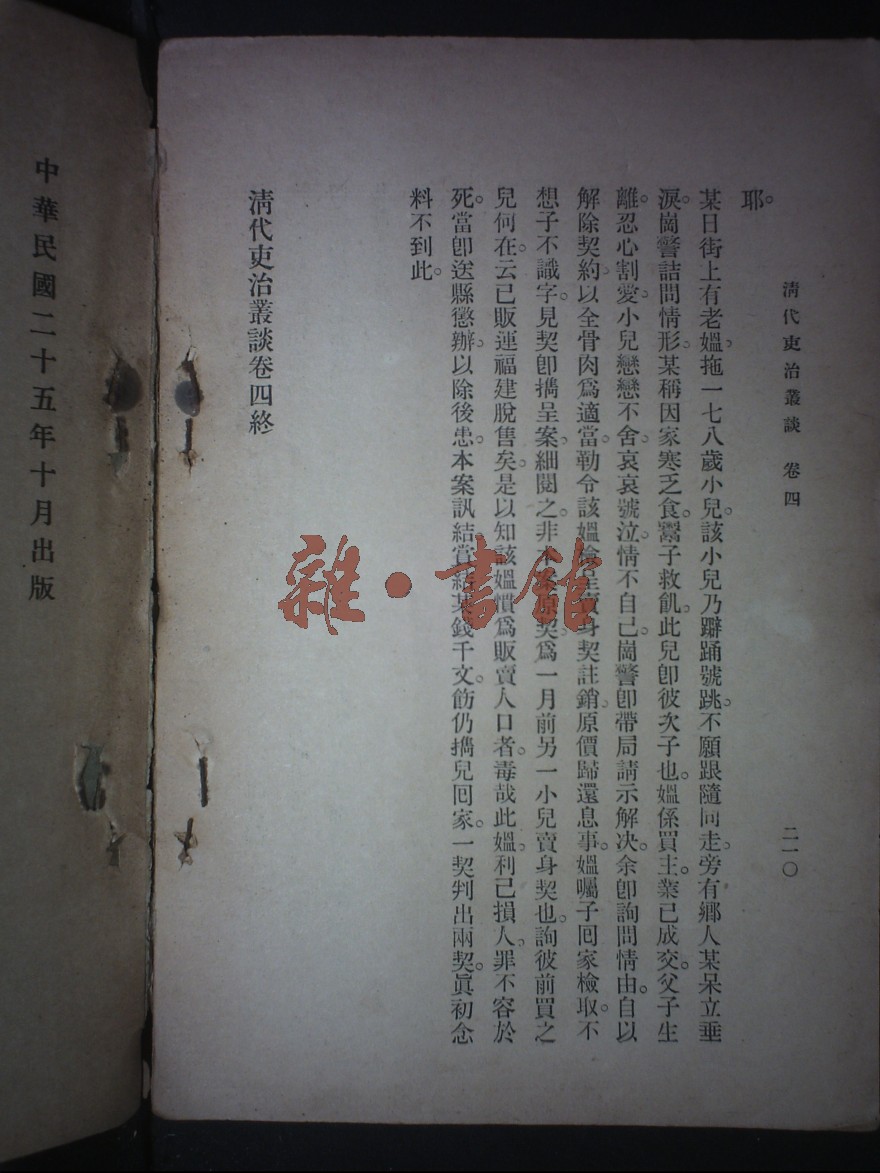 清代吏治叢談 卷四
二一〇
耶。
某日街上有老媼拖一七八歲小兒。該小兒乃躃踊號跳。不願跟隨同走。旁有鄉人某呆立垂
淚。崗警詰問情形。某稱因家寒乏食。鬻子救飢。此兒卽彼次子也。媼係買主。業已成交。父子生
離。忍心割愛。小兒戀戀不舍。哀哀號泣。情不自已。崗警卽帶局請示解決。余卽詢問情由。自以
解除契約。以全骨肉爲適當。勒令該媼繳呈賣身契註銷。原價歸還息事。媼囑子囘家檢取。不
想子不識字。見契卽攜呈案。細閱之。非本案原契。爲一月前另一小兒賣身契也。詢彼前買之
兒何在。云已販運福建脫售矣。是以知該媼慣爲販賣人口者。毒哉此媼。利己損人。罪不容於
死。當卽送縣懲辦。以除後患。本案訊結。賞給某錢千文。飭仍攜兒囘家。一契判出兩契。眞初念
料不到此。
清代吏治叢談卷四終
中華民國二十五年十月出版
雜·書館